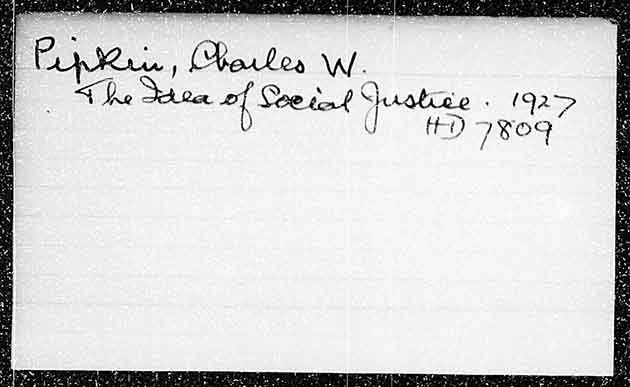 Pipkin, Charles W.
The Idea of Social Justice. 1927
HD 7809